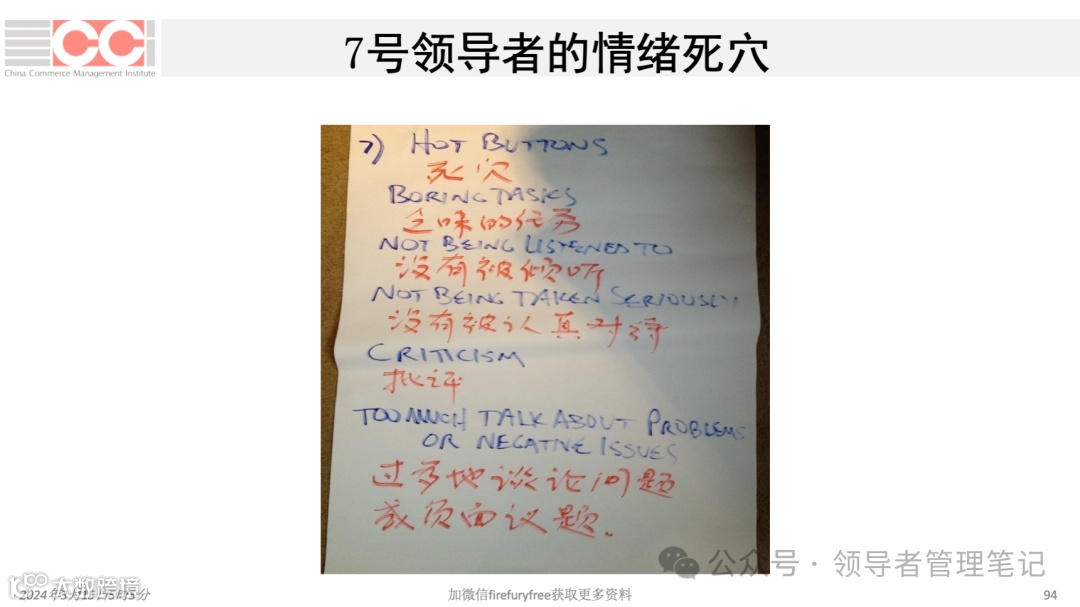 CCI
China Commerce Management Institute
7号领导者的情绪死穴
7) HOT BUTTONS
死穴
BORING TASKS
乏味的任务
NOT BEING LISTENED TO
没有被倾听
NOT BEING TAKEN SERIOUSLY
没有被认真对待
CRITICISM
批评
TOO MUCH TALK ABOUT PROBLEMS
OR NEGATIVE ISSUES
过多地谈论问题
或负面议题。
公众号·领导者管理笔记
大数跨境
加微信firefuryfree获取更多资料
94